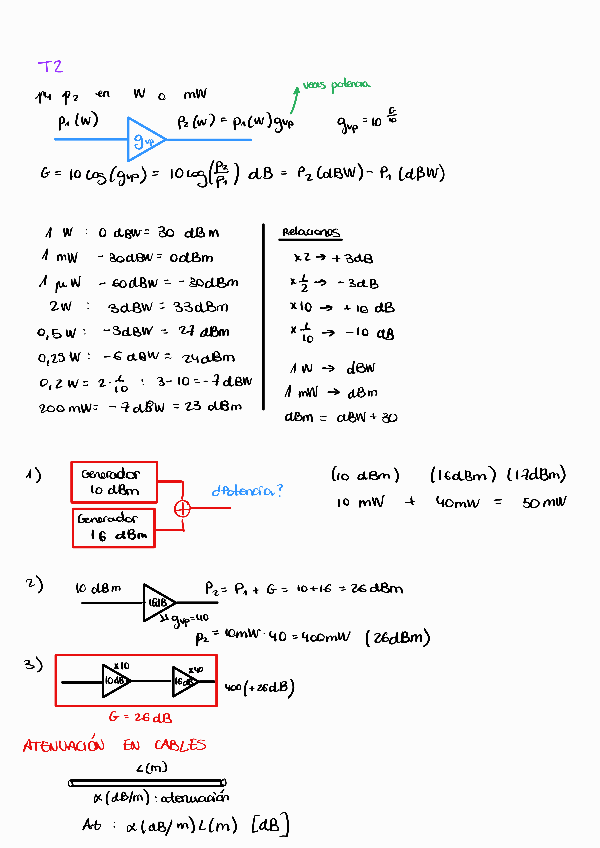 T2
p1 p2 en W o mW
veces potencia
p1 (W) gvp p2 (w) = p1(w) gvp gvp = 10^(G/10)
G = 10 log(gvp) = 10 log(p2/p1) dB = P2 (dBW) - P1 (dBW)
1 W : 0 dBW = 30 dBm
1 mW - 30dBW = 0dBm
1 μW - 60dBW = - 30dBm
2W : 3dBW = 33dBm
0,5 W : -3dBW = 27 dBm
0,25 W : -6 dBW = 24dBm
0,2 W = 2 · 1/10 : 3 - 10 = -7 dBW
200 mW = - 7 dBW = 23 dBm
Relaciones
x2 → + 3dB
x 1/2 → - 3dB
x10 → + 10 dB
x 1/10 → -10 dB
1 W → dBW
1 mW → dBm
dBm = dBW + 30
1)
Generador
10 dBm
Generador
16 dBm
+
¿Potencia?
(10 dBm) (16dBm) (17dBm)
10 mW + 40mW = 50 mW
2) 10 dBm 16dB P2 = P1 + G = 10+16 = 26 dBm
gvp = 40
p2 = 10mW · 40 = 400mW (26dBm)
3)
x10 x40
10dB 16dB 400 (+26dB)
G = 26 dB
ATENUACIÓN EN CABLES
L(m)
α (dB/m) : atenuación
At : α (dB/m) L(m) [dB]